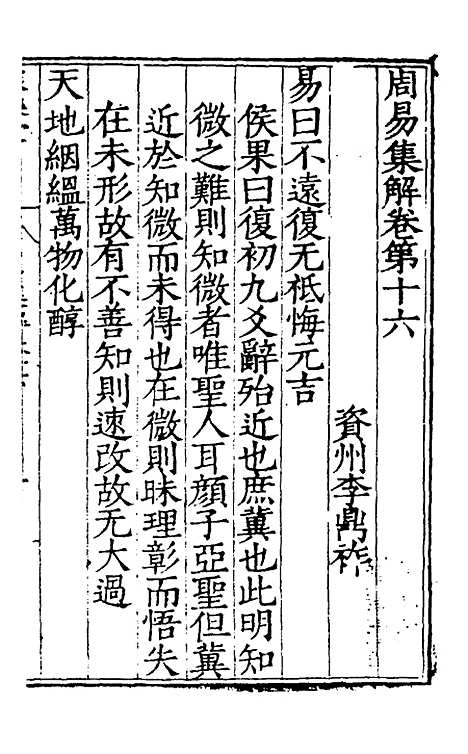 周易集解卷第十六
資州李鼎祚
易曰不遠復无祗悔元吉
侯果曰復初九爻辭殆近也庶冀也此明知
微之難則知微者唯聖人耳顏子亞聖但冀
近於知微而未得也在微則昧理彰而悟失
在未形故有不善知則速改故无大過
天地絪縕萬物化醇